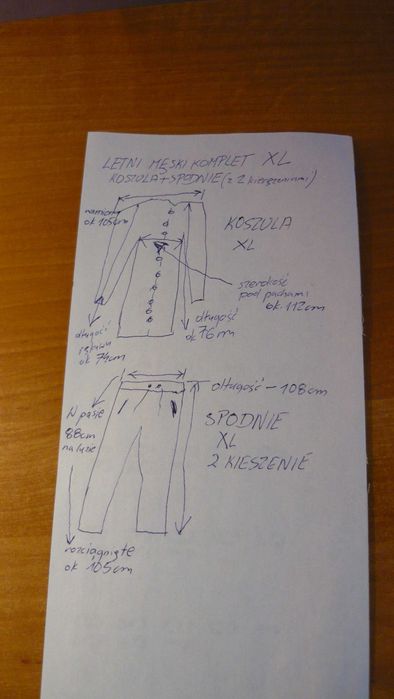 LETNI MĘSKI KOMPLET XL
KOSZULA + SPODNIE (z 2 kieszeniami)
ramiona
ok 105cm
KOSZULA
XL
szerokość
pod pachami
ok. 112cm
długość
ok 76cm
długość
rękawa
ok 74cm
długość - 108cm
W pasie
88cm
na luzie
SPODNIE
XL
2 KIESZENIE
rozciągnięte
ok 105cm